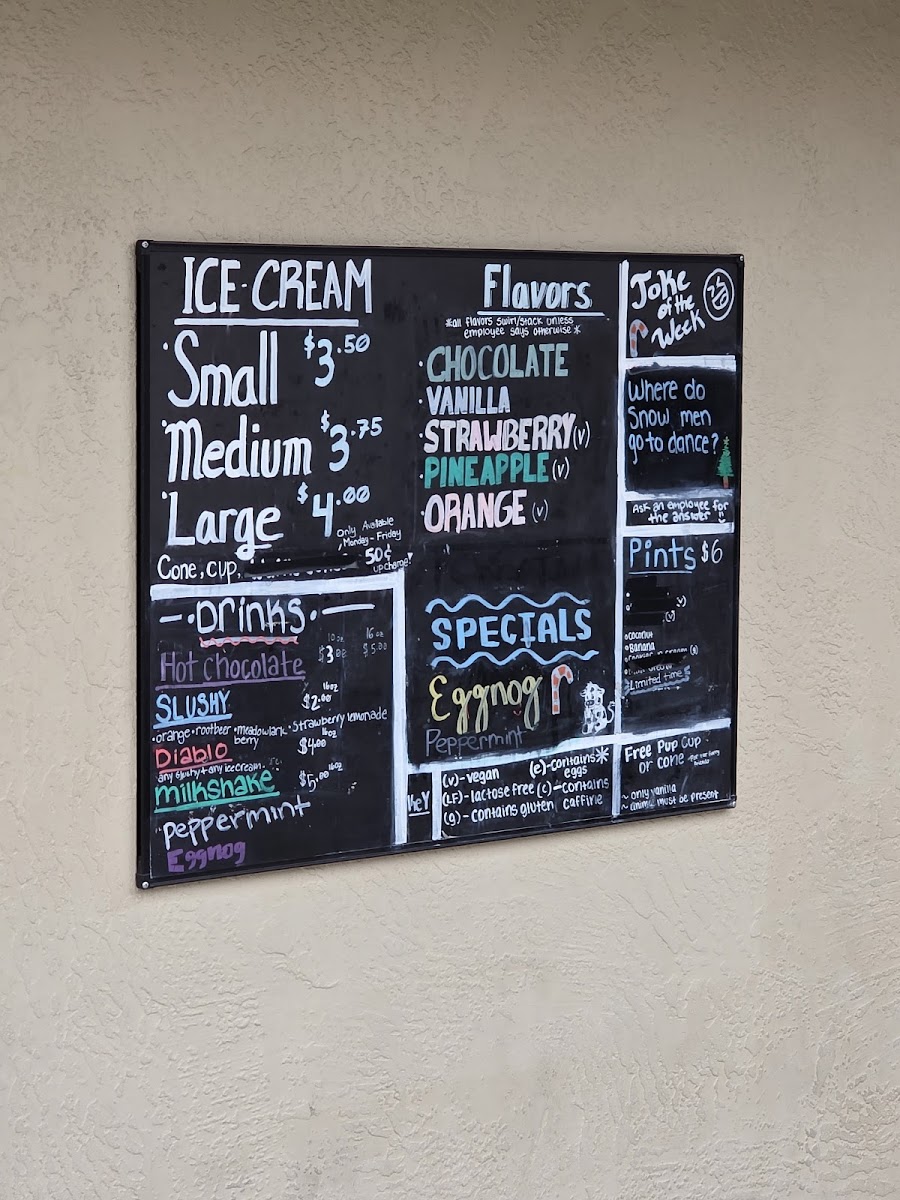 ICE-CREAM
Small $3.50
Medium $3.75
Large $4.00
Only Available
Monday - Friday
Cone, cup,
50¢
upcharge!
Drinks
10 oz 16 oz
Hot Chocolate $3.00 $5.00
16oz
SLUSHY $2.00
•orange •rootbeer •meadowlark •strawberry lemonade
berry
16oz
Diablo $4.00
any slushy + any icecream
16oz
milkshake $5.00
peppermint
Eggnog
Flavors
*all flavors swirl/stack unless
employee says otherwise*
•CHOCOLATE
•VANILLA
•STRAWBERRY(v)
•PINEAPPLE(v)
•ORANGE (v)
SPECIALS
Eggnog
Peppermint
KEY
(v)-vegan (e)-contains*
eggs
(LF)-lactose free (c)-contains
caffirie
(g)-contains gluten
Joke
of the
Week
Where do
Snow men
go to dance?
Ask an employee for
the answer
Pints $6
(v)
(v)
•coconut
•Banana
Limited time
Free Pup Cup
or cone
~ only vanilla
~ animal must be present